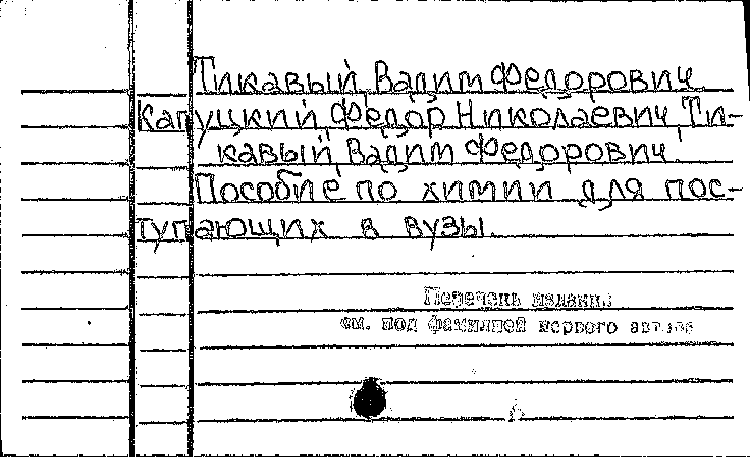 Тикавый, Вадим Федорович.
Капуцкий, Федор Николаевич, Ти-
кавый, Вадим Федорович.
Пособие по химии для пос-
тупающих в вузы.
Перечень издания
см. под фамилией первого автора